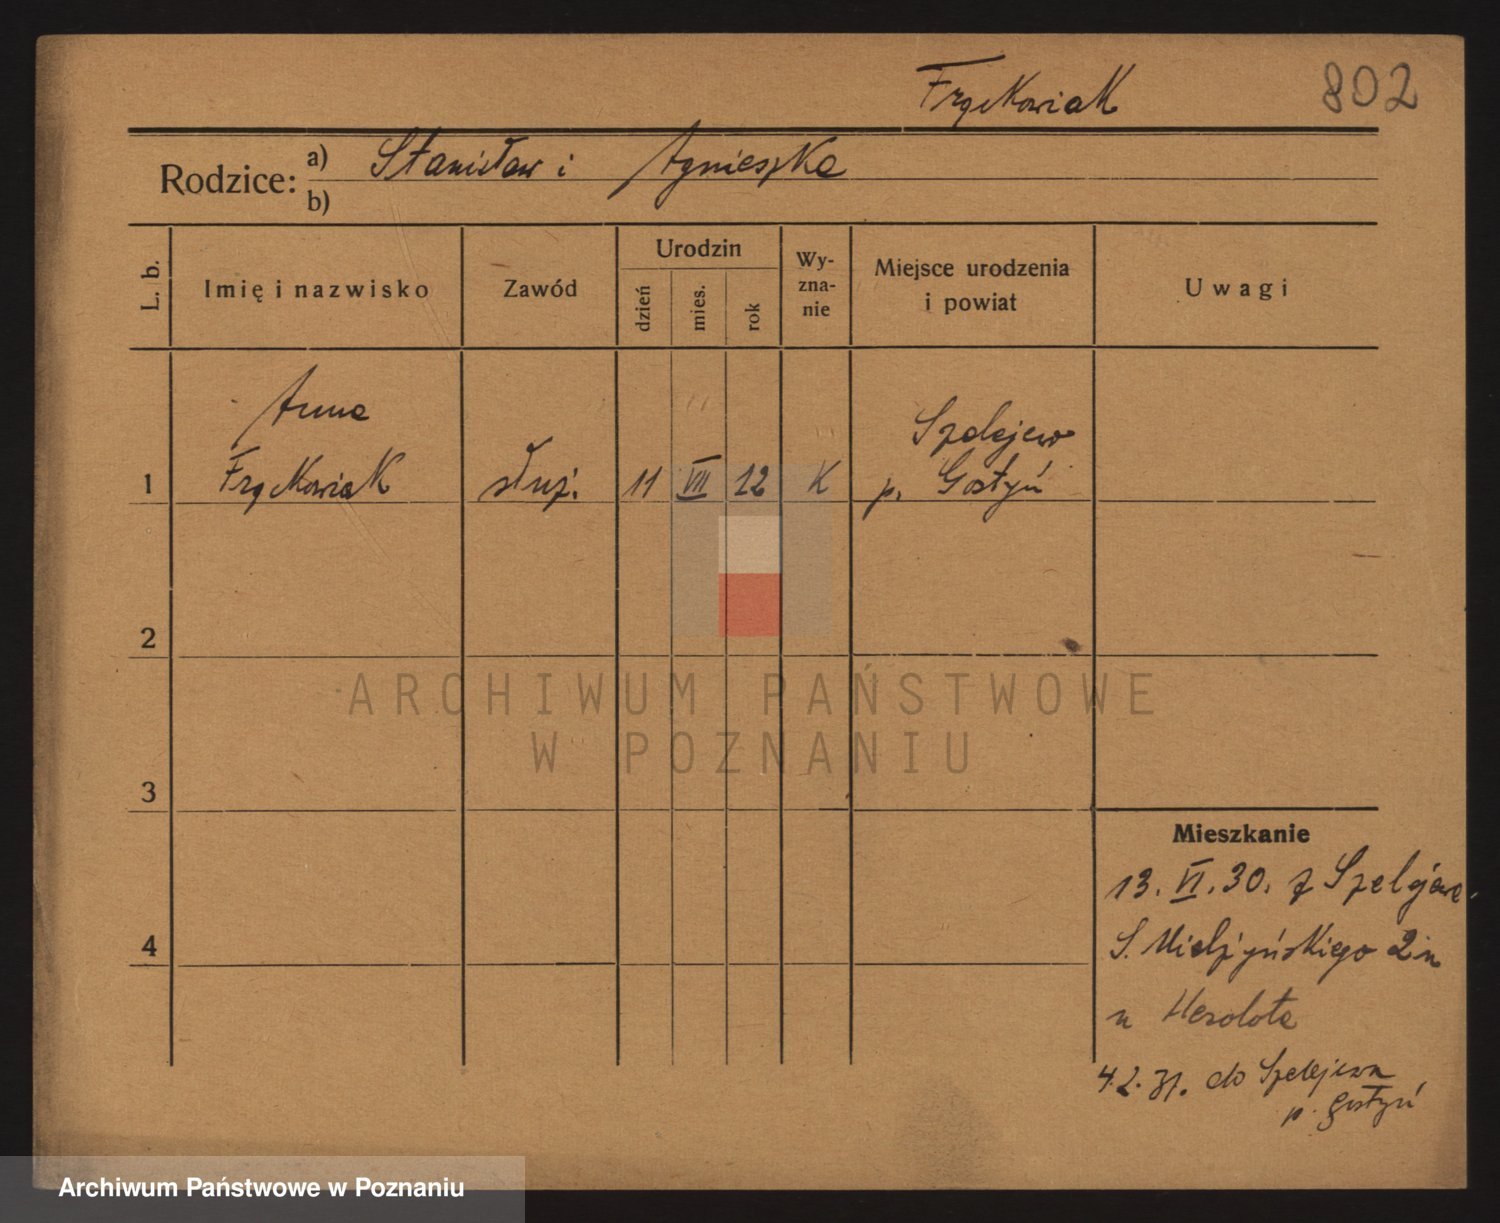 Frąckowiak 802
Rodzice: a) Stanisław i Agnieszka
b)
L. b. Imię i nazwisko Zawód Urodzin dzień mies. rok Wy-zna-nie Miejsce urodzenia i powiat Uwagi
Anna Szelejewo
1 Frąckowiak służ. 11 VII 12 K p. Gostyń
2
3
Mieszkanie
13. VI. 30. z Szelejewa
4 S. Mielżyńskiego 2
u Herolota
4. 2. 31. do Szelejewa
p. Gostyń
ARCHIWUM PAŃSTWOWE
W POZNANIU
Archiwum Państwowe w Poznaniu